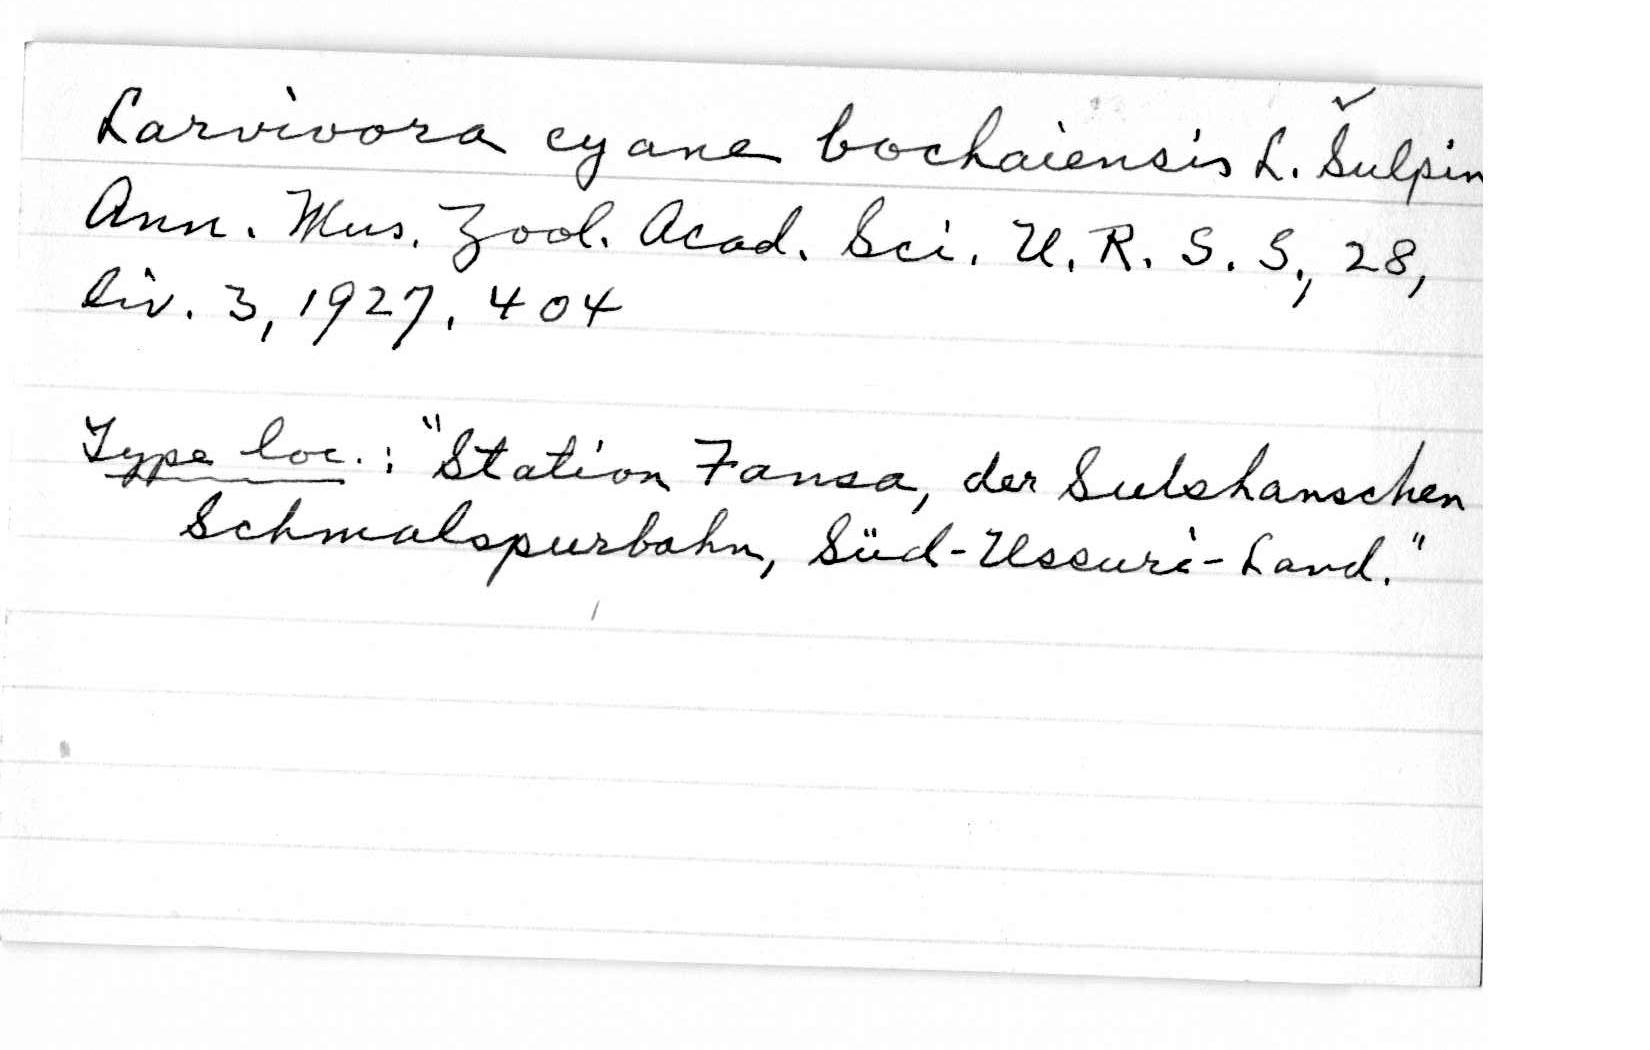 Larvivora cyane bochaiensis L. Šulpin
Ann. Mus. Zool. Acad. Sci. U. R. S. S., 28,
liv. 3, 1927, 404
Type loc.: "Station Fansa, der Sutshanschen
Schmalspurbahn, Süd-Ussuri-Land."